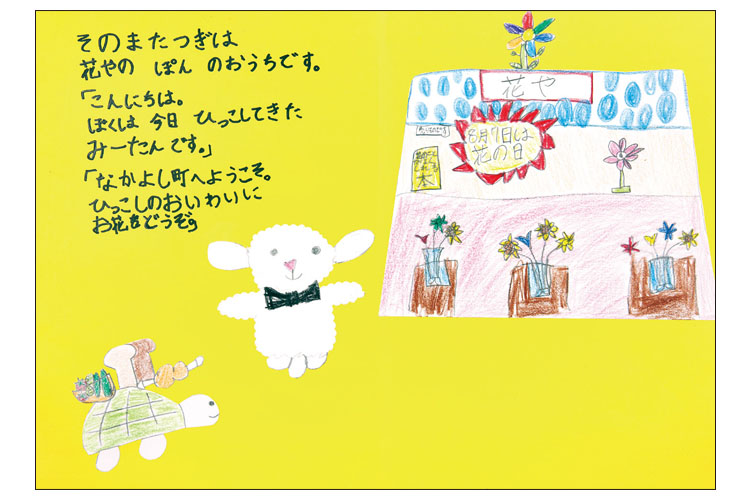 そのまたつぎは
花やの ぽん のおうちです。
「こんにちは。
ぼくは 今日 ひっこしてきた
みーたんです。」
「なかよし町へようこそ。
ひっこしのおいわいに
お花をどうぞ。
花や
8月7日は
花の日